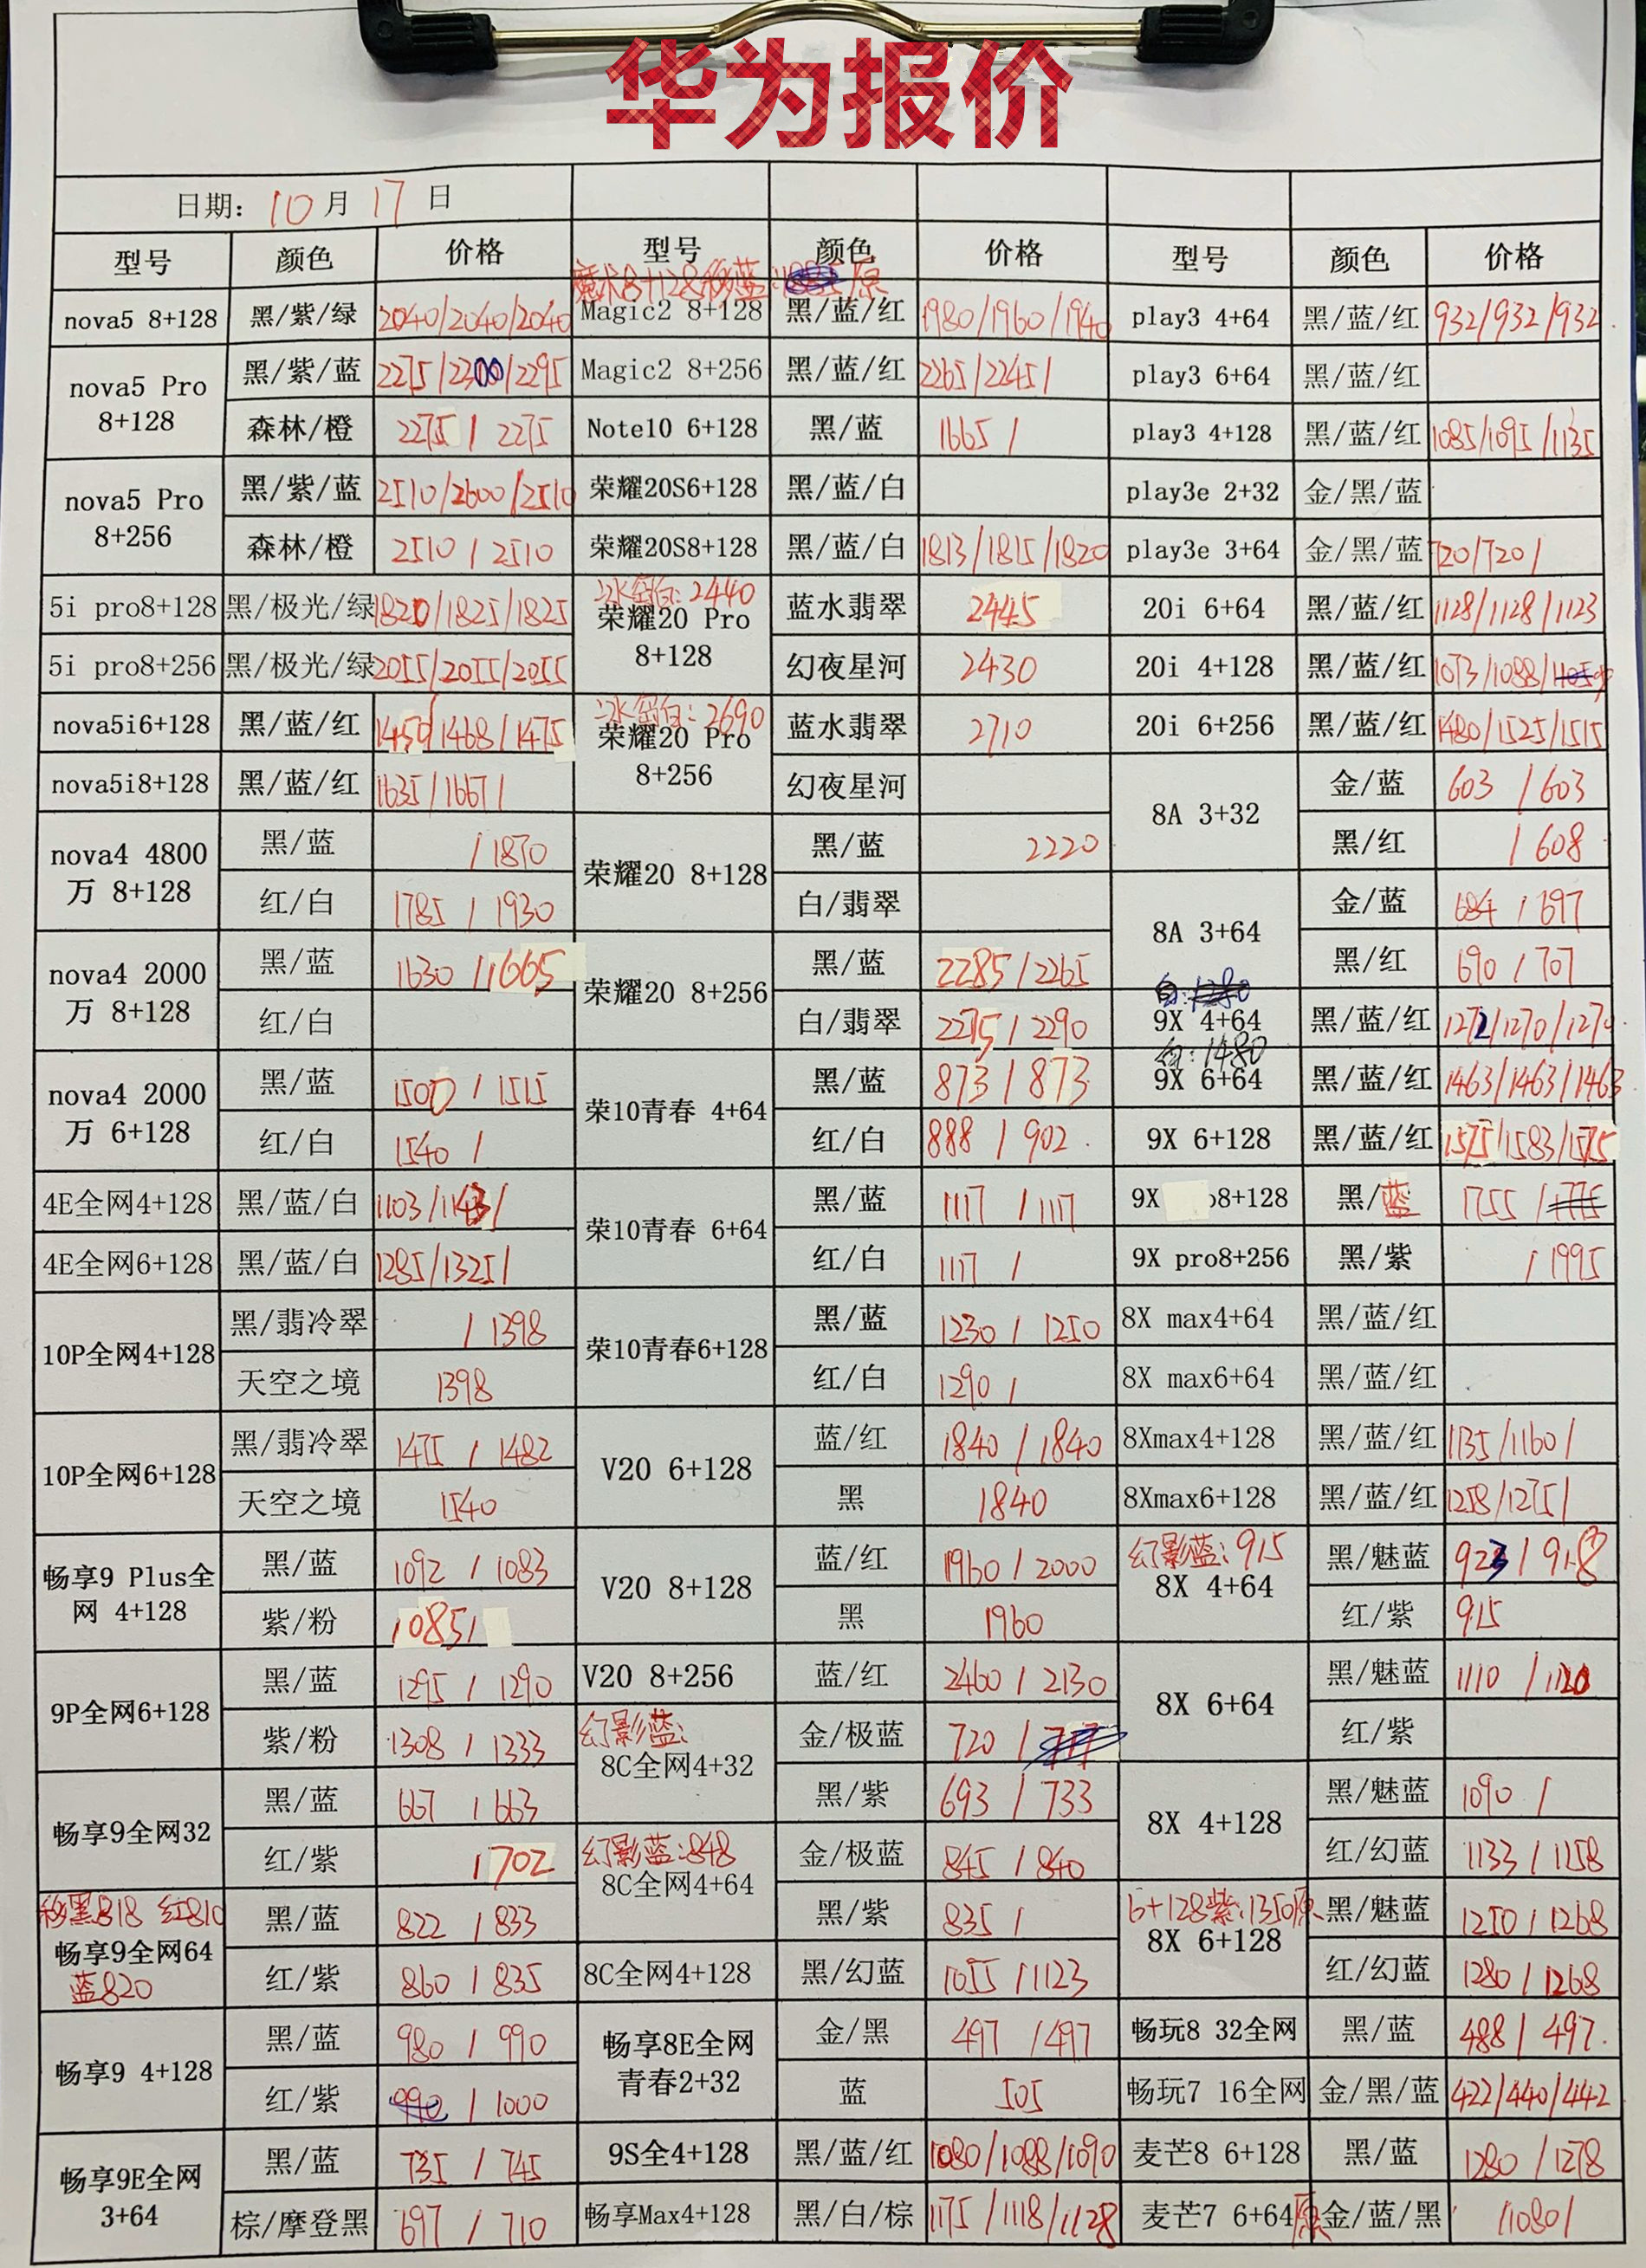 华为报价
日期: 10 月 17 日
型号 颜色 价格 型号 颜色 价格 型号 颜色 价格
魔术8+128移蓝:
nova5 8+128 黑/紫/绿 2040/2040/2040 Magic2 8+128 黑/蓝/红 1980/1960/1940 play3 4+64 黑/蓝/红 932/932/932
nova5 Pro 8+128 黑/紫/蓝 2275/2300/2295 Magic2 8+256 黑/蓝/红 2265/2245/ play3 6+64 黑/蓝/红
森林/橙 2275 / 2275 Note10 6+128 黑/蓝 1665 / play3 4+128 黑/蓝/红 1085/1095/1135
nova5 Pro 8+256 黑/紫/蓝 2510/2600/2510 荣耀20S6+128 黑/蓝/白 play3e 2+32 金/黑/蓝
森林/橙 2510 / 2510 荣耀20S8+128 黑/蓝/白 1813/1815/1820 play3e 3+64 金/黑/蓝 720/720/
5i pro8+128 黑/极光/绿 1820/1825/1825 冰岛白:2440 荣耀20 Pro 8+128 蓝水翡翠 2445 20i 6+64 黑/蓝/红 1128/1128/1123
5i pro8+256 黑/极光/绿 2055/2055/2055 幻夜星河 2430 20i 4+128 黑/蓝/红 1073/1088/
nova5i6+128 黑/蓝/红 1450/1468/1475 冰岛白:2690 荣耀20 Pro 8+256 蓝水翡翠 2710 20i 6+256 黑/蓝/红 1480/1525/1515
nova5i8+128 黑/蓝/红 1635/1667/ 幻夜星河 8A 3+32 金/蓝 603 / 603
nova4 4800万 8+128 黑/蓝 / 1870 荣耀20 8+128 黑/蓝 2220 黑/红 / 608
红/白 1785 / 1930 白/翡翠 8A 3+64 金/蓝 684 / 697
nova4 2000万 8+128 黑/蓝 1630 /1665 荣耀20 8+256 黑/蓝 2285/2265 黑/红 690 / 707
红/白 白/翡翠 2275 / 2290 白: 9X 4+64 黑/蓝/红 1272/1270/1270
nova4 2000万 6+128 黑/蓝 1500 / 1515 荣10青春 4+64 黑/蓝 873 / 873 白:1480 9X 6+64 黑/蓝/红 1463/1463/1463
红/白 1540 / 红/白 888 / 902 9X 6+128 黑/蓝/红 1575/1583/1575
4E全网4+128 黑/蓝/白 1103/1143/ 荣10青春 6+64 黑/蓝 1117 / 1117 9X o8+128 黑/蓝 1755 / 1775
4E全网6+128 黑/蓝/白 1285/1325/ 红/白 1117 / 9X pro8+256 黑/紫 / 1995
10P全网4+128 黑/翡冷翠 / 1398 荣10青春6+128 黑/蓝 1230 / 1250 8X max4+64 黑/蓝/红
天空之境 1398 红/白 1290 / 8X max6+64 黑/蓝/红
10P全网6+128 黑/翡冷翠 1475 / 1482 V20 6+128 蓝/红 1840 / 1840 8Xmax4+128 黑/蓝/红 1135/1160/
天空之境 1540 黑 1840 8Xmax6+128 黑/蓝/红 1258/1275/
畅享9 Plus全网 4+128 黑/蓝 1092 / 1083 V20 8+128 蓝/红 1960 / 2000 幻影蓝:915 8X 4+64 黑/魅蓝 923 / 918
紫/粉 1085/ 黑 1960 红/紫 915
9P全网6+128 黑/蓝 1295 / 1290 V20 8+256 蓝/红 2460 / 2130 8X 6+64 黑/魅蓝 1110 / 1120
紫/粉 1308 / 1333 幻影蓝: 8C全网4+32 金/极蓝 720 / 红/紫
畅享9全网32 黑/蓝 667 / 663 黑/紫 693 / 733 8X 4+128 黑/魅蓝 1090 /
红/紫 / 702 幻影蓝:848 8C全网4+64 金/极蓝 845 / 840 红/幻蓝 1133 / 1158
移黑818 红810 畅享9全网64 蓝820 黑/蓝 822 / 833 黑/紫 835 / 6+128紫:1350原 8X 6+128 黑/魅蓝 1250 / 1268
红/紫 860 / 835 8C全网4+128 黑/幻蓝 1055 /1123 红/幻蓝 1280 / 1268
畅享9 4+128 黑/蓝 980 / 990 畅享8E全网青春2+32 金/黑 497 /497 畅玩8 32全网 黑/蓝 488 / 497
红/紫 990 / 1000 蓝 505 畅玩7 16全网 金/黑/蓝 422/440/442
畅享9E全网 3+64 黑/蓝 735 / 745 9S全4+128 黑/蓝/红 1080/1088/1090 麦芒8 6+128 黑/蓝 1280 / 1278
棕/摩登黑 697 / 710 畅享Max4+128 黑/白/棕 1175/1118/1128 麦芒7 6+64原 金/蓝/黑 /1080/